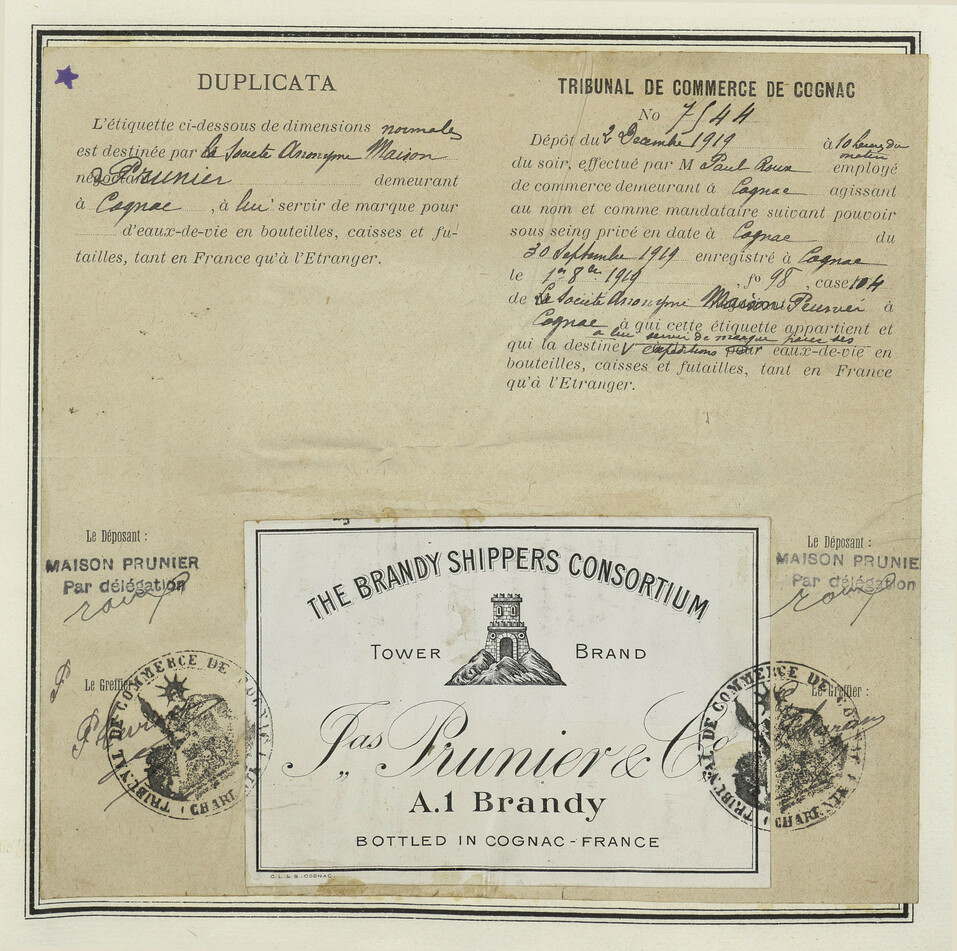 DUPLICATA
L'étiquette ci-dessous de dimensions normales
est destinée par la Societe Anonyme Maison
négociant Prunier demeurant
à Cognac , à lui servir de marque pour
d'eaux-de-vie en bouteilles, caisses et fu-
tailles, tant en France qu'à l'Etranger.
TRIBUNAL DE COMMERCE DE COGNAC
No 7544
Dépôt du 2 Decembre 1919 à 10 heures du
matin
du soir, effectué par M Paul Roux employé
de commerce demeurant à Cognac agissant
au nom et comme mandataire suivant pouvoir
sous seing privé en date à Cognac du
30 Septembre 1919 enregistré à Cognac
le 1er 8bre 1919 , fo 98 , case 104
de La Société Anonyme Maison Prunier à
Cognac à qui cette étiquette appartient et
à lui servir de marque pour ses
qui la destine expéditions pour eaux-de-vie en
bouteilles, caisses et futailles, tant en France
qu'à l'Etranger.
Le Déposant :
MAISON PRUNIER
Par délégation
roux
Le Greffier
TRIBUNAL DE COMMERCE DE COGNAC
THE BRANDY SHIPPERS CONSORTIUM
TOWER BRAND
Jas Prunier & Co
A.1 Brandy
BOTTLED IN COGNAC - FRANCE
C.L. & S. COGNAC.
Le Déposant :
MAISON PRUNIE
Par délégation
roux
Le Greffier :
TRIBUNAL DE COMMERCE DE CO
CHARENTE